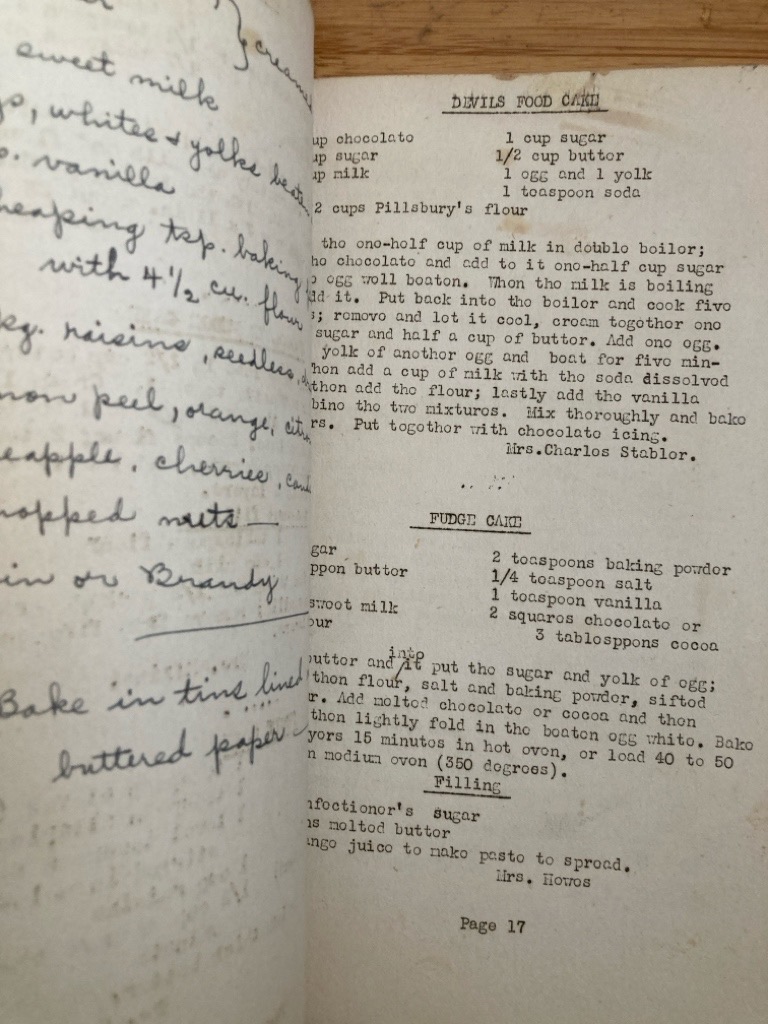 creamed
sweet milk
whites & yolks beaten
vanilla
heaping tsp. baking
with 4 1/2 cu. flour
raisins, seedless,
peel, orange,
cherries,
nuts —
or Brandy
Bake in tins lined
buttered paper
DEVILS FOOD CAKE
up chocolato 1 cup sugar
up sugar 1/2 cup buttor
up milk 1 ogg and 1 yolk
1 toaspoon soda
2 cups Pillsbury's flour
tho ono-half cup of milk in doublo boilor;
ho chocolato and add to it ono-half cup sugar
ogg woll boaton. Whon tho milk is boiling
dd it. Put back into tho boilor and cook fivo
s; romovo and lot it cool, croam togothor ono
sugar and half a cup of buttor. Add ono ogg.
yolk of anothor ogg and boat for fivo min-
hon add a cup of milk with tho soda dissolvod
thon add tho flour; lastly add tho vanilla
bino tho two mixturos. Mix thoroughly and bako
rs. Put togothor with chocolato icing.
Mrs.Charlos Stablor.
FUDGE CAKE
gar 2 toaspoons baking powdor
ppon buttor 1/4 toaspoon salt
1 toaspoon vanilla
swoot milk 2 squaros chocolato or
our 3 tablosppons cocoa
into
buttor and it put tho sugar and yolk of ogg;
thon flour, salt and baking powdor, siftod
r. Add moltod chocolato or cocoa and thon
thon lightly fold in tho boaton ogg whito. Bako
yors 15 minutos in hot ovon, or load 40 to 50
n modium ovon (350 dogroos).
Filling
nfoctionor's sugar
ns moltod buttor
ango juico to mako pasto to sproad.
Mrs. Howos
Pago 17